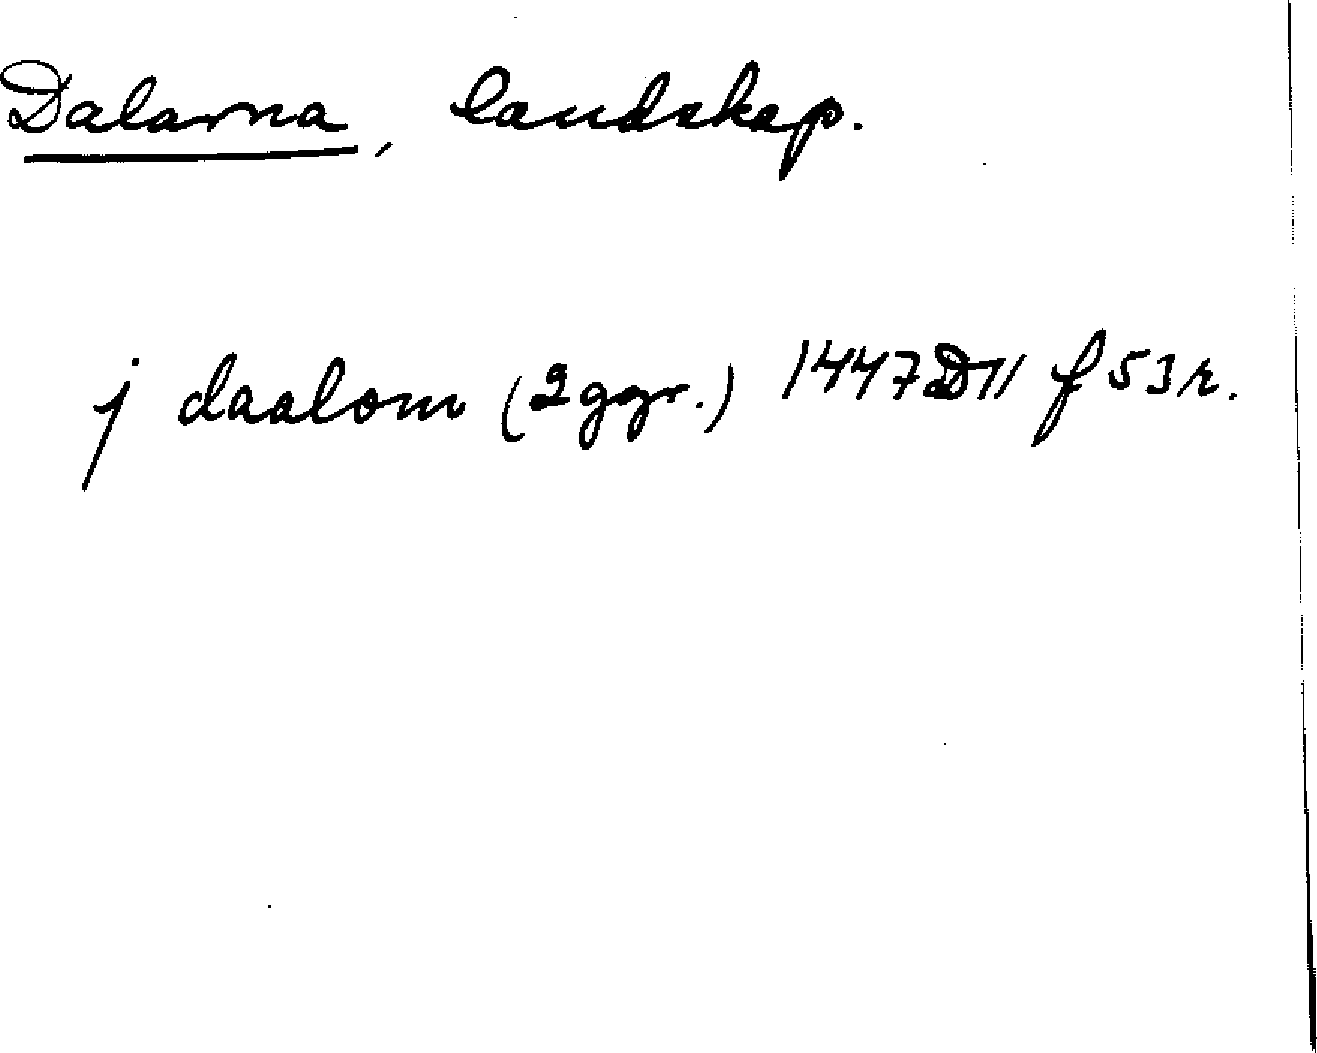 Dalarna, landskap.
j daalom (2 ggr.) 1447 D11 f 53 r.